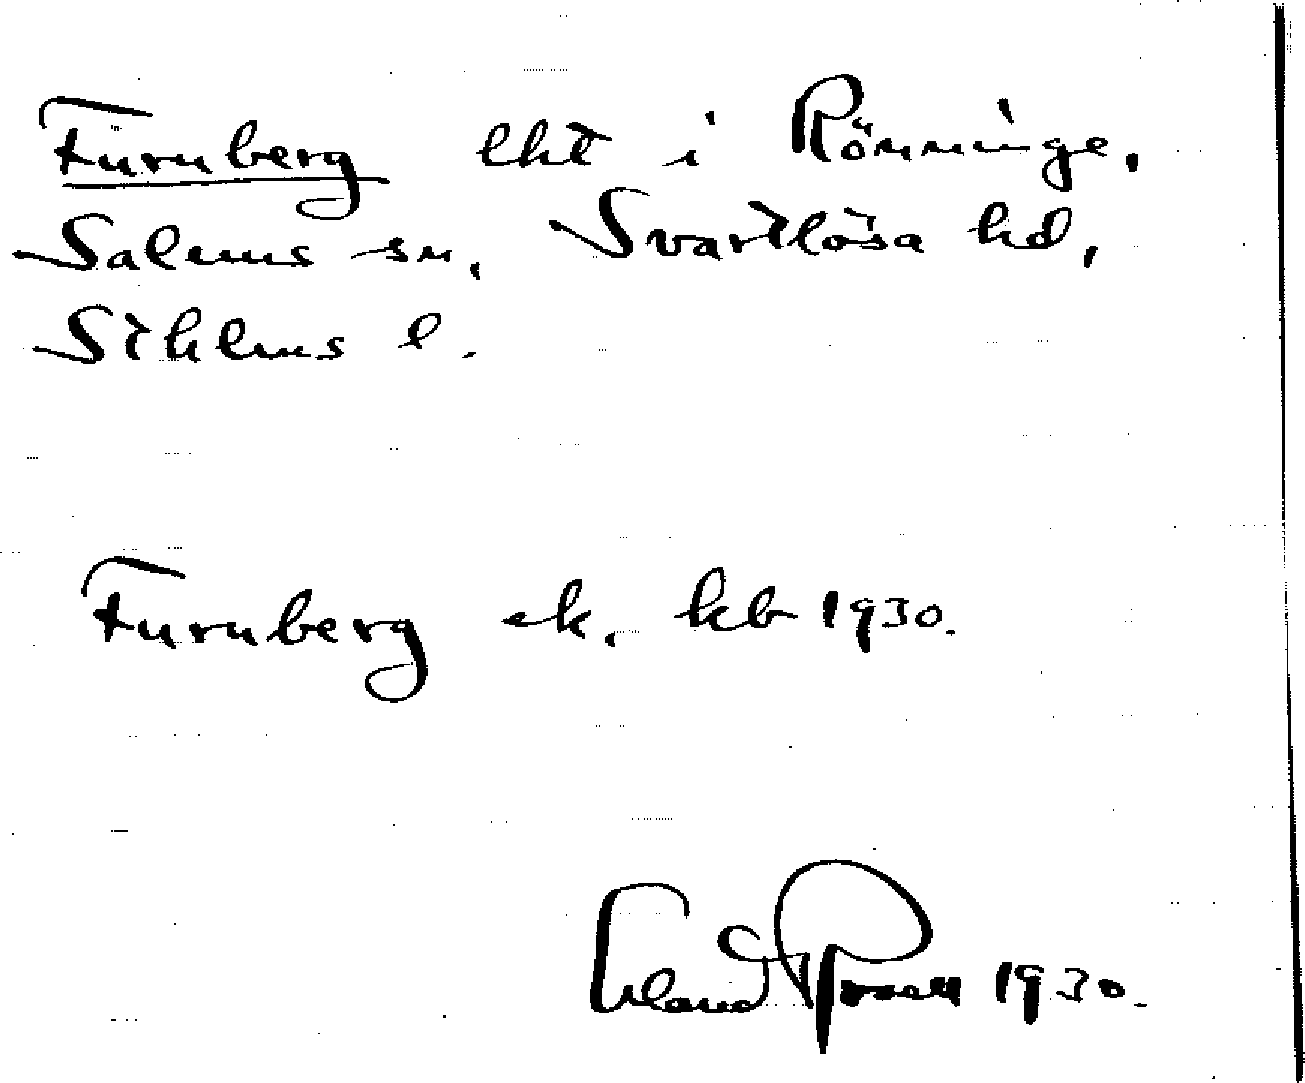 Furuberg lht i Rönninge,
Salems sn, Svartlösa hd,
Sthlms l.
Furuberg ek. kb 1930.
Erland Rosell 1930.